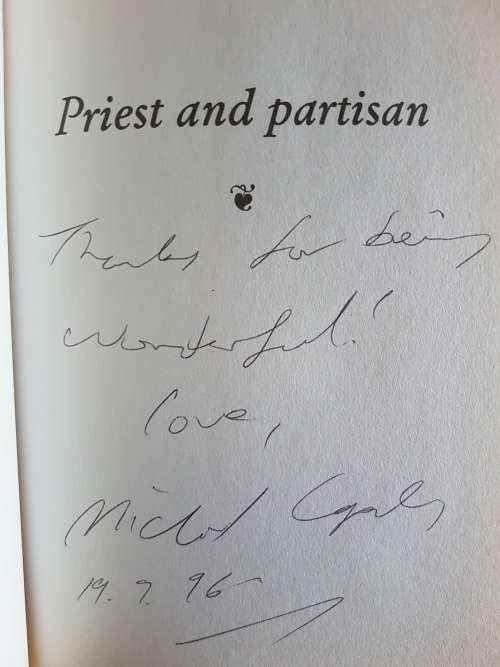 Priest and partisan
Thanks for being
wonderful!
love,
Michael
19. 9. 96